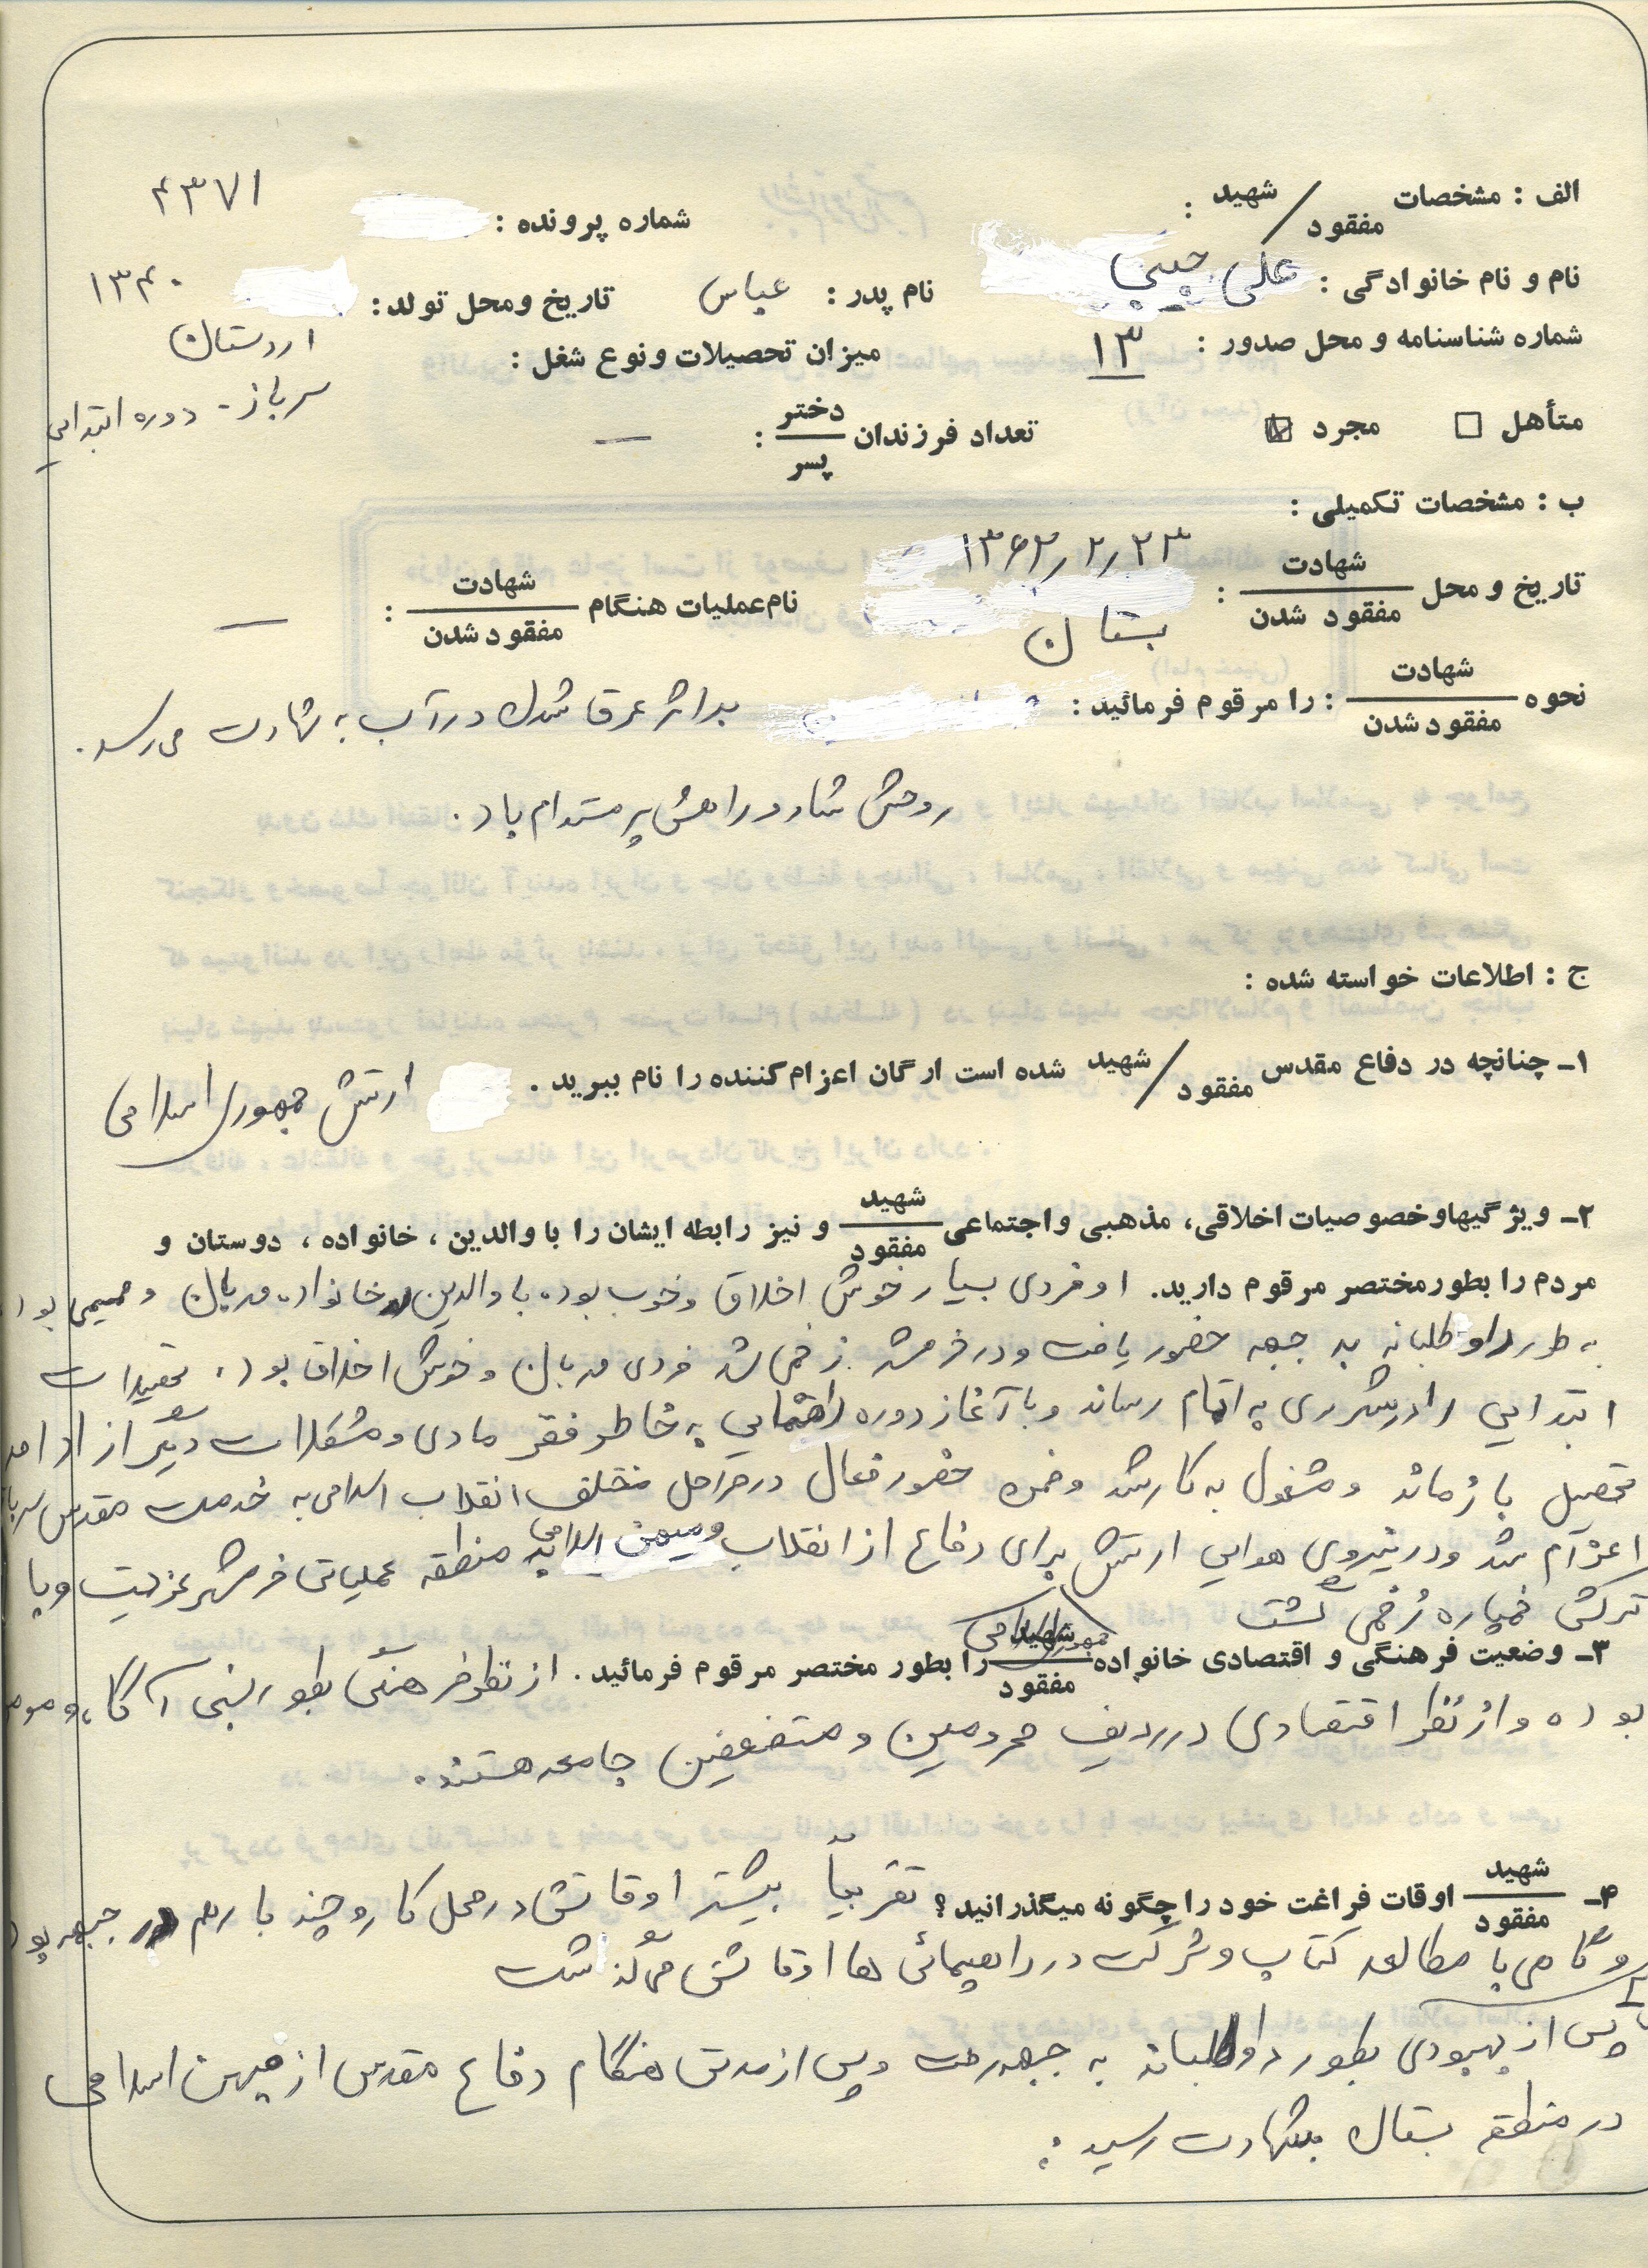 الف : مشخصات شهید / مفقود :
شماره پرونده : ۴۳۷۱
نام و نام خانوادگی : علی حبیبی
نام پدر : عباس
تاریخ ومحل تولد : ۱۳۴۰
اردستان
شماره شناسنامه و محل صدور : ۱۳
میزان تحصیلات ونوع شغل :
سرباز - دوره ابتدایی
متأهل □ مجرد ☑
تعداد فرزندان دختر / پسر : —
ب : مشخصات تکمیلی :
تاریخ و محل شهادت / مفقود شدن : ۱۳۶۲/۲/۲۳
بستان
نام عملیات هنگام شهادت / مفقود شدن : —
نحوه شهادت / مفقود شدن : را مرقوم فرمائید : بر اثر غرق شدن در آب به شهادت می‌رسد.
روحش شاد و راهش پر مستدام باد.
ج : اطلاعات خواسته شده :
۱ـ چنانچه در دفاع مقدس شهید / مفقود شده است ارگان اعزام کننده را نام ببرید . ارتش جمهوری اسلامی
۲ـ ویژگیهاوخصوصیات اخلاقی، مذهبی واجتماعی شهید / مفقود و نیز رابطه ایشان را با والدین ، خانواده ، دوستان و
مردم را بطور مختصر مرقوم دارید. او فردی بسیار خوش اخلاق و خوب بوده با والدین و خانواده مهربان و صمیمی بود
به طور داوطلبانه به جبهه حضور یافت و در خرمشهر زخمی شد فردی مهربان و خوش اخلاق بود، تحصیلات
ابتدایی را در شهرری به اتمام رساند و با آغاز دوره راهنمایی به خاطر فقر مادی و مشکلات دیگر از ادامه
تحصیل بازماند و مشغول به کار شد و ضمن حضور فعال در مراحل مختلف انقلاب اسلامی به خدمت مقدس سربازی
اعزام شد و در نیروی هوایی ارتش برای دفاع از انقلاب و میهن اسلامی به منطقه عملیاتی خرمشهر عزیمت و با
ترکش خمپاره زخمی گشت
جمهوری اسلامی
۳ـ وضعیت فرهنگی و اقتصادی خانواده شهید / مفقود را بطور مختصر مرقوم فرمائید . از نظر فرهنگی بطور نسبی آگاه و مومن
بوده و از نظر اقتصادی در ردیف محرومین و مستضعفین جامعه هستند.
۴ـ شهید / مفقود اوقات فراغت خود را چگونه میگذرانید ؟ تقریباً بیشتر اوقاتش در محل کار و چند بار هم در جبهه بود
و گاهی با مطالعه کتاب و شرکت در راهپیمائی ها اوقاتش می‌گذاشت
پس از بهبودی بطور داوطلبانه به جبهه رفت و پس از مدتی هنگام دفاع مقدس از میهن اسلامی
در منطقه بستان بشهادت رسید.